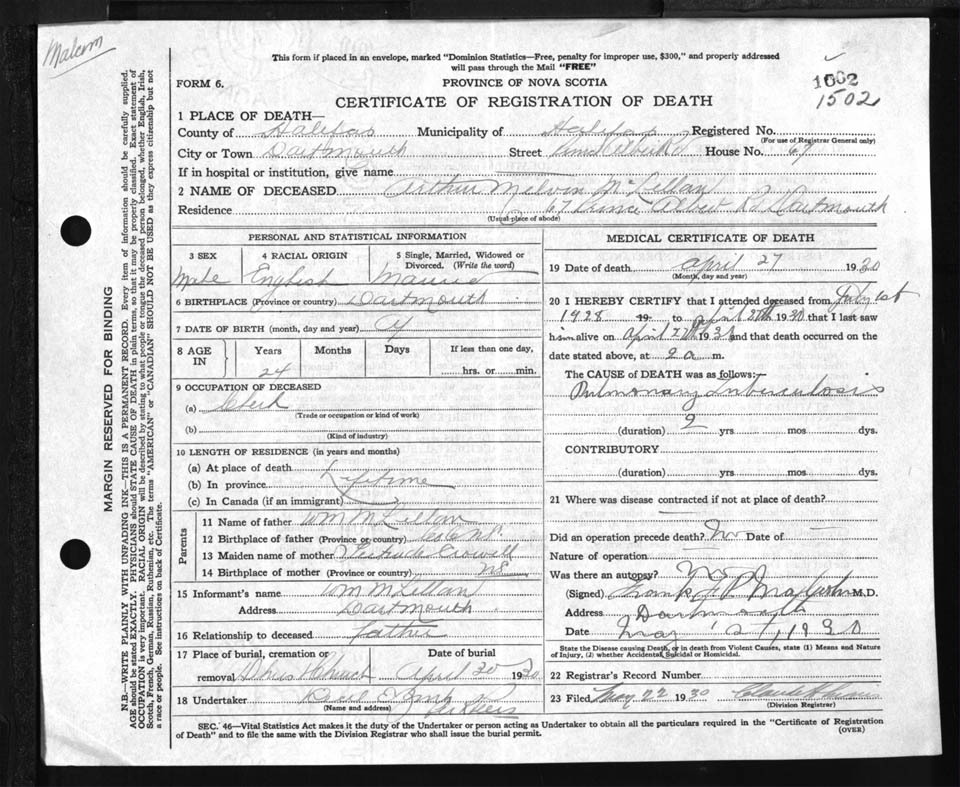 Malcom
This form if placed in an envelope, marked "Dominion Statistics—Free, penalty for improper use, $300," and properly addressed
will pass through the Mail "FREE"
FORM 6.
PROVINCE OF NOVA SCOTIA
1502
CERTIFICATE OF REGISTRATION OF DEATH
1 PLACE OF DEATH—
County of Halifax Municipality of Halifax Registered No.
(For use of Registrar General only)
City or Town Dartmouth Street Prince Albert Rd House No. 67
If in hospital or institution, give name
2 NAME OF DECEASED Arthur Melvin McLellan
Residence 67 Prince Albert Rd Dartmouth
(Usual place of abode)
PERSONAL AND STATISTICAL INFORMATION
3 SEX
Male
4 RACIAL ORIGIN
English
5 Single, Married, Widowed or
Divorced. (Write the word)
Married
6 BIRTHPLACE (Province or country) Dartmouth
7 DATE OF BIRTH (month, day and year)
8 AGE IN
Years Months Days If less than one day,
24 hrs. or min.
9 OCCUPATION OF DECEASED
(a) Clerk
(Trade or occupation or kind of work)
(b)
(Kind of industry)
10 LENGTH OF RESIDENCE (in years and months)
(a) At place of death
(b) In province Lifetime
(c) In Canada (if an immigrant)
Parents
11 Name of father Wm McLellan
12 Birthplace of father (Province or country)
13 Maiden name of mother Gertrude Crowell
14 Birthplace of mother (Province or country) NS
15 Informant's name Wm McLellan
Address Dartmouth
16 Relationship to deceased father
17 Place of burial, cremation or Date of burial
removal April 30 1930
18 Undertaker
(Name and address)
MEDICAL CERTIFICATE OF DEATH
19 Date of death April 27 1930
(Month, day and year)
20 I HEREBY CERTIFY that I attended deceased from July 1st
1928 19 to April 27th 1930 that I last saw
him alive on April 27th 1930 and that death occurred on the
date stated above, at 2 a m.
The CAUSE OF DEATH was as follows:
Pulmonary Tuberculosis
(duration) 2 yrs mos dys.
CONTRIBUTORY
(duration) yrs mos dys.
21 Where was disease contracted if not at place of death?
Did an operation precede death? No Date of
Nature of operation
Was there an autopsy? No
(Signed) Frank M.D.
Address Dartmouth
Date May 1930
State the Disease causing Death, or in death from Violent Causes, state (1) Means and Nature
of Injury, (2) whether Accidental, Suicidal or Homicidal.
22 Registrar's Record Number
23 Filed May 22 1930
(Division Registrar)
SEC. 46—Vital Statistics Act makes it the duty of the Undertaker or person acting as Undertaker to obtain all the particulars required in the "Certificate of Registration
of Death" and to file the same with the Division Registrar who shall issue the burial permit.
(OVER)
MARGIN RESERVED FOR BINDING
N.B.—WRITE PLAINLY WITH UNFADING INK—THIS IS A PERMANENT RECORD. Every item of information should be carefully supplied.
AGE should be stated EXACTLY. PHYSICIANS should STATE CAUSE OF DEATH in plain terms, so that it may be properly classified. Exact statement of
OCCUPATION is very important. RACIAL ORIGIN will be described by stating to what people or tongue the deceased person belonged, whether English, Irish,
Scotch, French, German, Russian, Ruthenian, etc. The terms "AMERICAN" or "CANADIAN" SHOULD NOT BE USED as they express citizenship but not
a race or people. See instructions on back of Certificate.